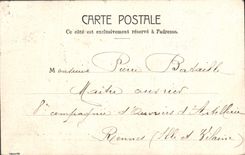 CARTE POSTALE
Ce côté est exclusivement réservé à l'adresse.
Monsieur Pierre
Maitre ouvrier
8e compagnie d'Ouvriers d'Artillerie
Rennes (Ille et Vilaine